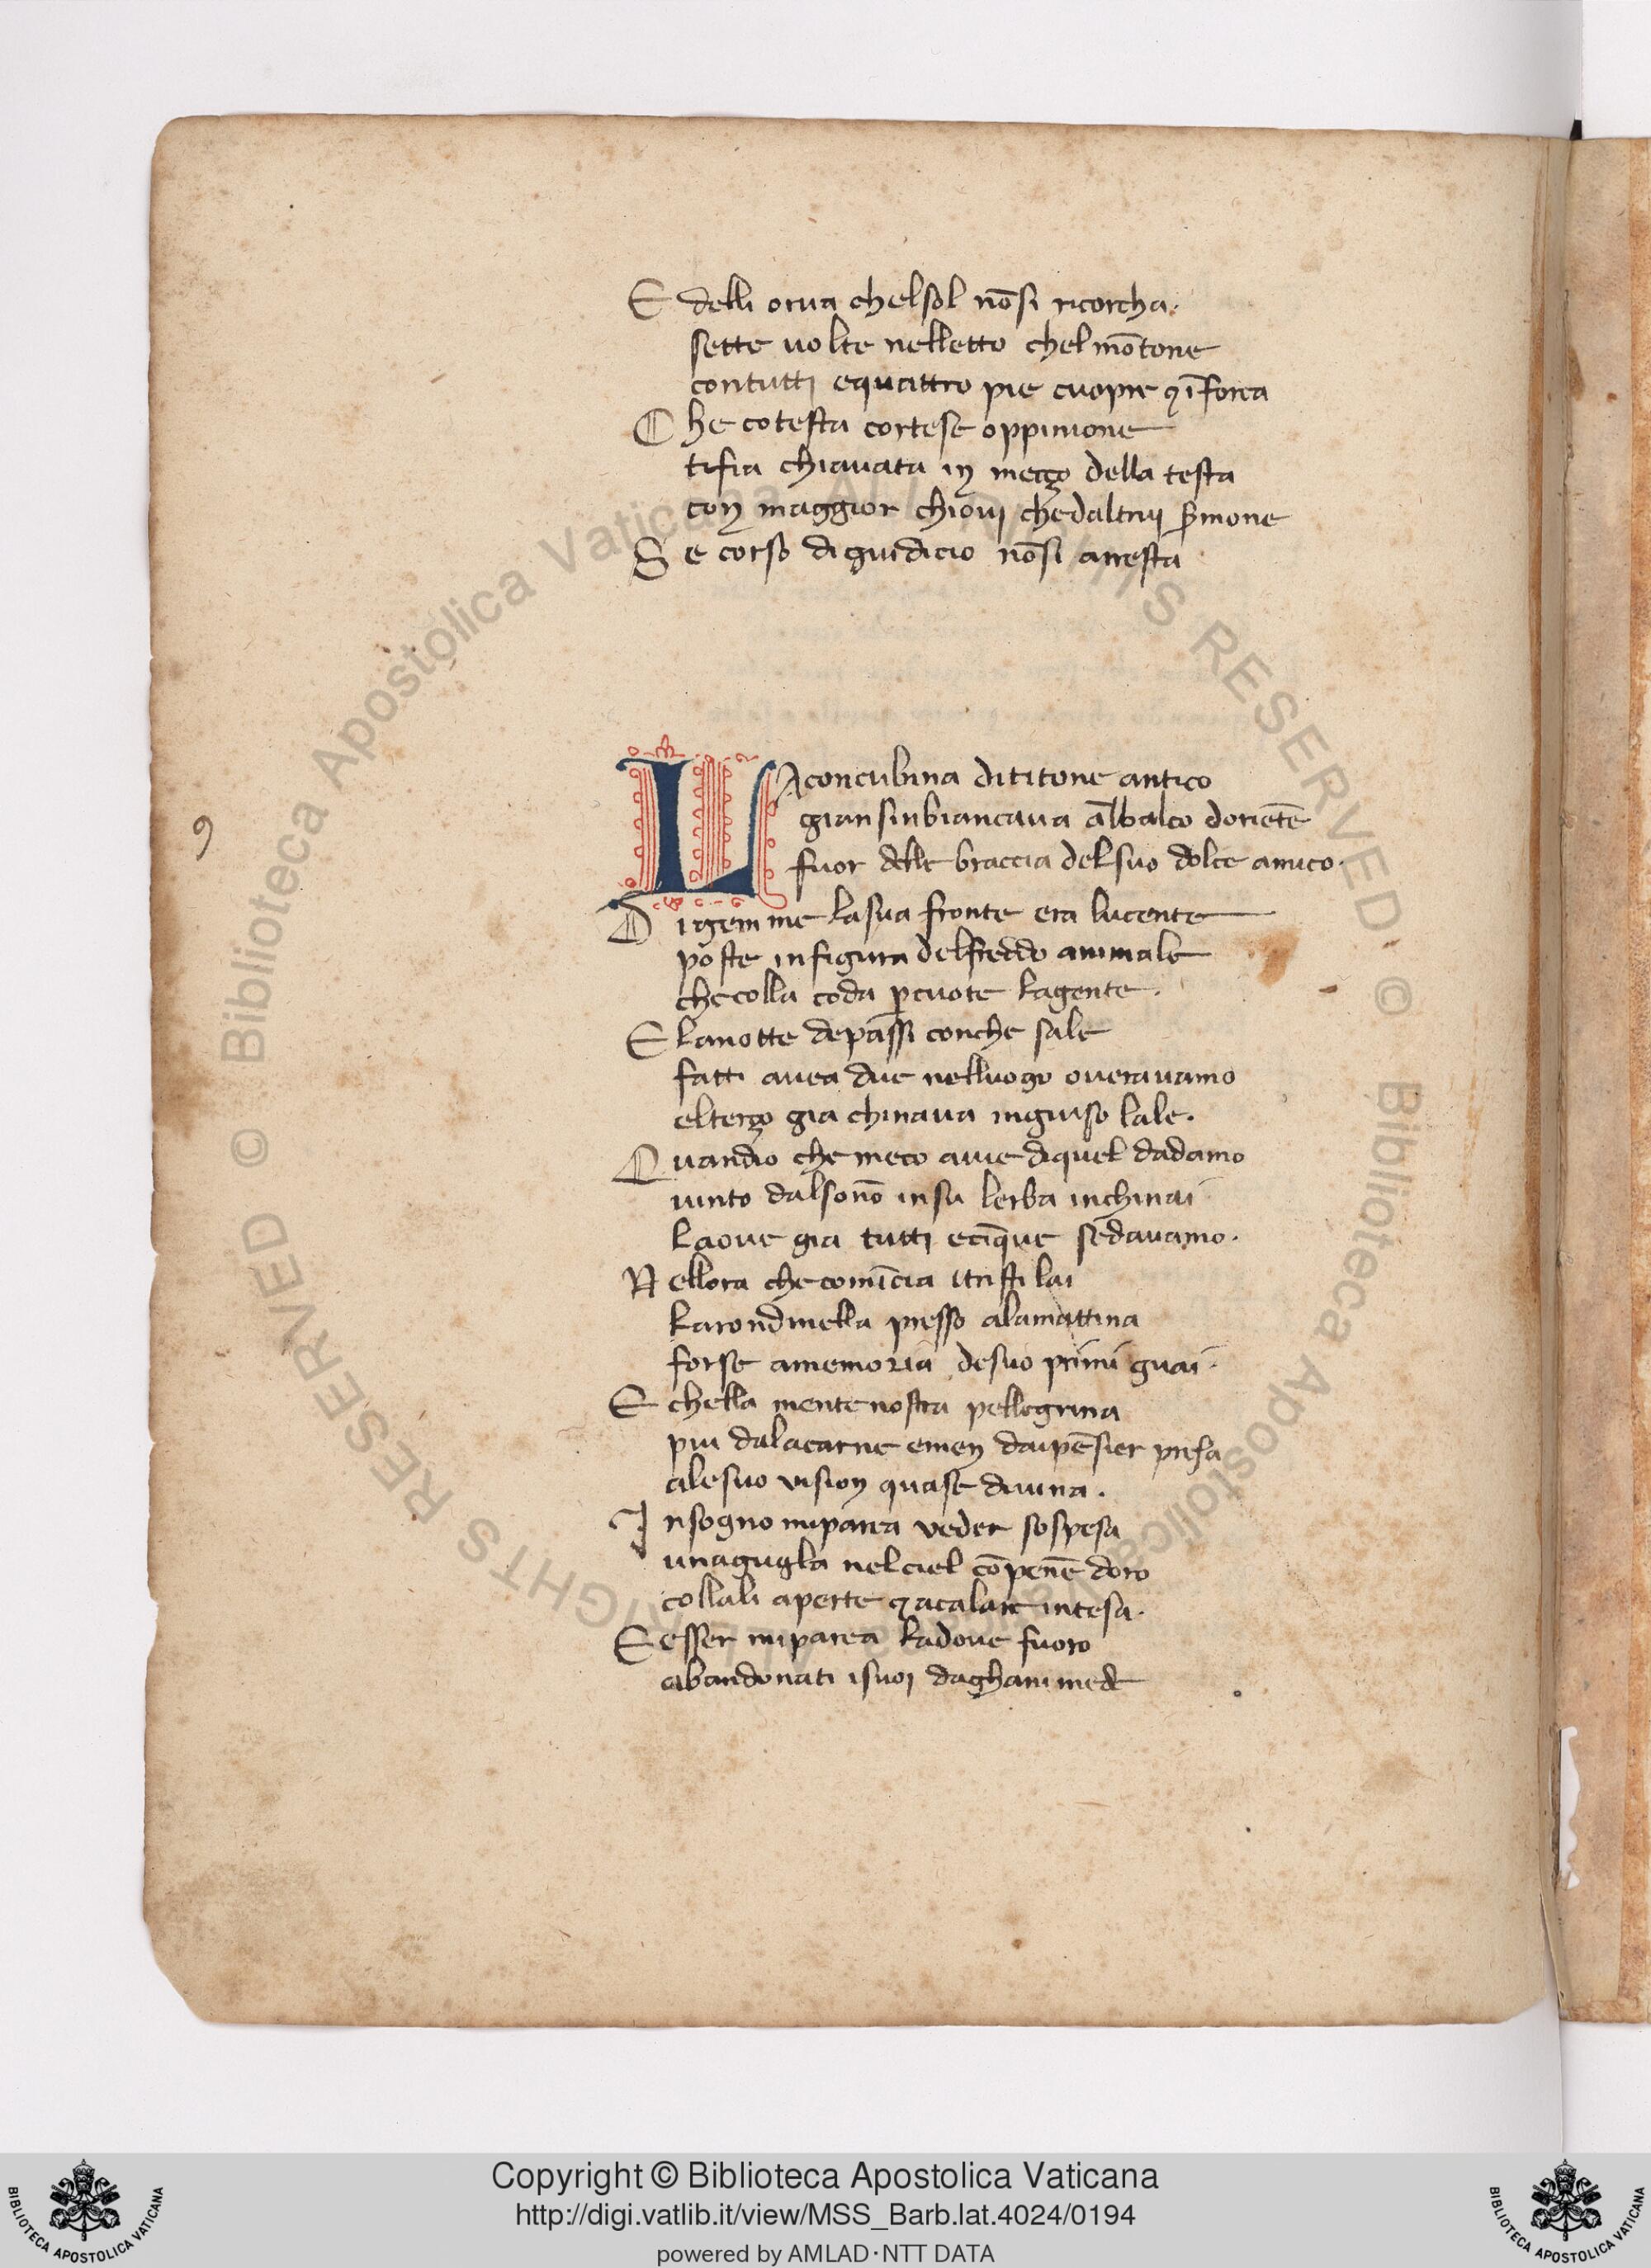 E delli orua chelsol nōsi ricorcha.
sette uolte nelletto chel mōtone
contutti equattro pie cuopre ⁊ īforca
C he cotesta cortese oppinione
tisia chiauata in meçço della testa
con maggior chioui chedaltrui s̄mone
S e corso digiudicio nōsi arresta
9
L A concubina dititone antico
gia nsinbiancaua al balco doriētē
fuor delle braccia delsuo dolce amico.
D i gemme lasua fronte era lucente
poste infigura delfreddo animale
checolla coda p̄cuote lagente.
E lanotte depassi conche sale
fatti auea due nelluogo ouerauamo
elterço gia chinaua ingiuso lale.
Q uando che meco auie diquel dadamo
uinto dalsonō insu lerba inchinai
laoue gia tutti ecīque sedauamo.
N ellora checomīcia itristi lai
larondinella presso alamattina
forse amemoria desuo primi guai.
E chella mente nostra pellegrina
piu dalacarne emen daipēsier presa
alesuo vision quase diuina.
I nsogno miparea veder sospesa
unagugla nelciel cōpenē doro
collali aperte ⁊ acalare intesa.
E esser miparea ladoue fuoro
abandonati isuoi daghanimede
© Biblioteca Apostolica Vaticana ALL RIGHTS RESERVED © Biblioteca Apostolica Vaticana ALL RIGHTS RESERVED
Copyright © Biblioteca Apostolica Vaticana
http://digi.vatlib.it/view/MSS_Barb.lat.4024/0194
powered by AMLAD·NTT DATA
BIBLIOTECA APOSTOLICA VATICANA
BIBLIOTECA APOSTOLICA VATICANA